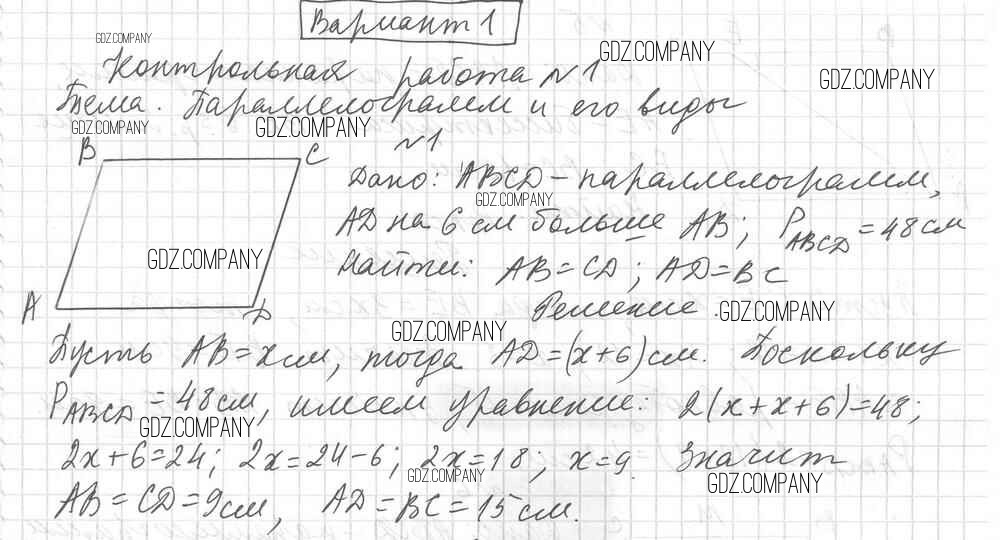 Вариант 1
GDZ.COMPANY
GDZ.COMPANY
Контрольная работа №1
GDZ.COMPANY
Тема. Параллелограмм и его виды
GDZ.COMPANY
GDZ.COMPANY
№1
B
C
Дано: ABCD - параллелограмм,
GDZ.COMPANY
AD на 6 см больше AB; P_ABCD = 48 см
GDZ.COMPANY
Найти: AB = CD; AD = BC
A
D
Решение.
GDZ.COMPANY
GDZ.COMPANY
Пусть AB = x см, тогда AD = (x+6) см. Поскольку
P_ABCD = 48 см, имеем уравнение: 2(x+x+6)=48;
GDZ.COMPANY
2x+6=24; 2x=24-6; 2x=18; x=9. Значит
GDZ.COMPANY
GDZ.COMPANY
AB = CD = 9 см, AD = BC = 15 см.